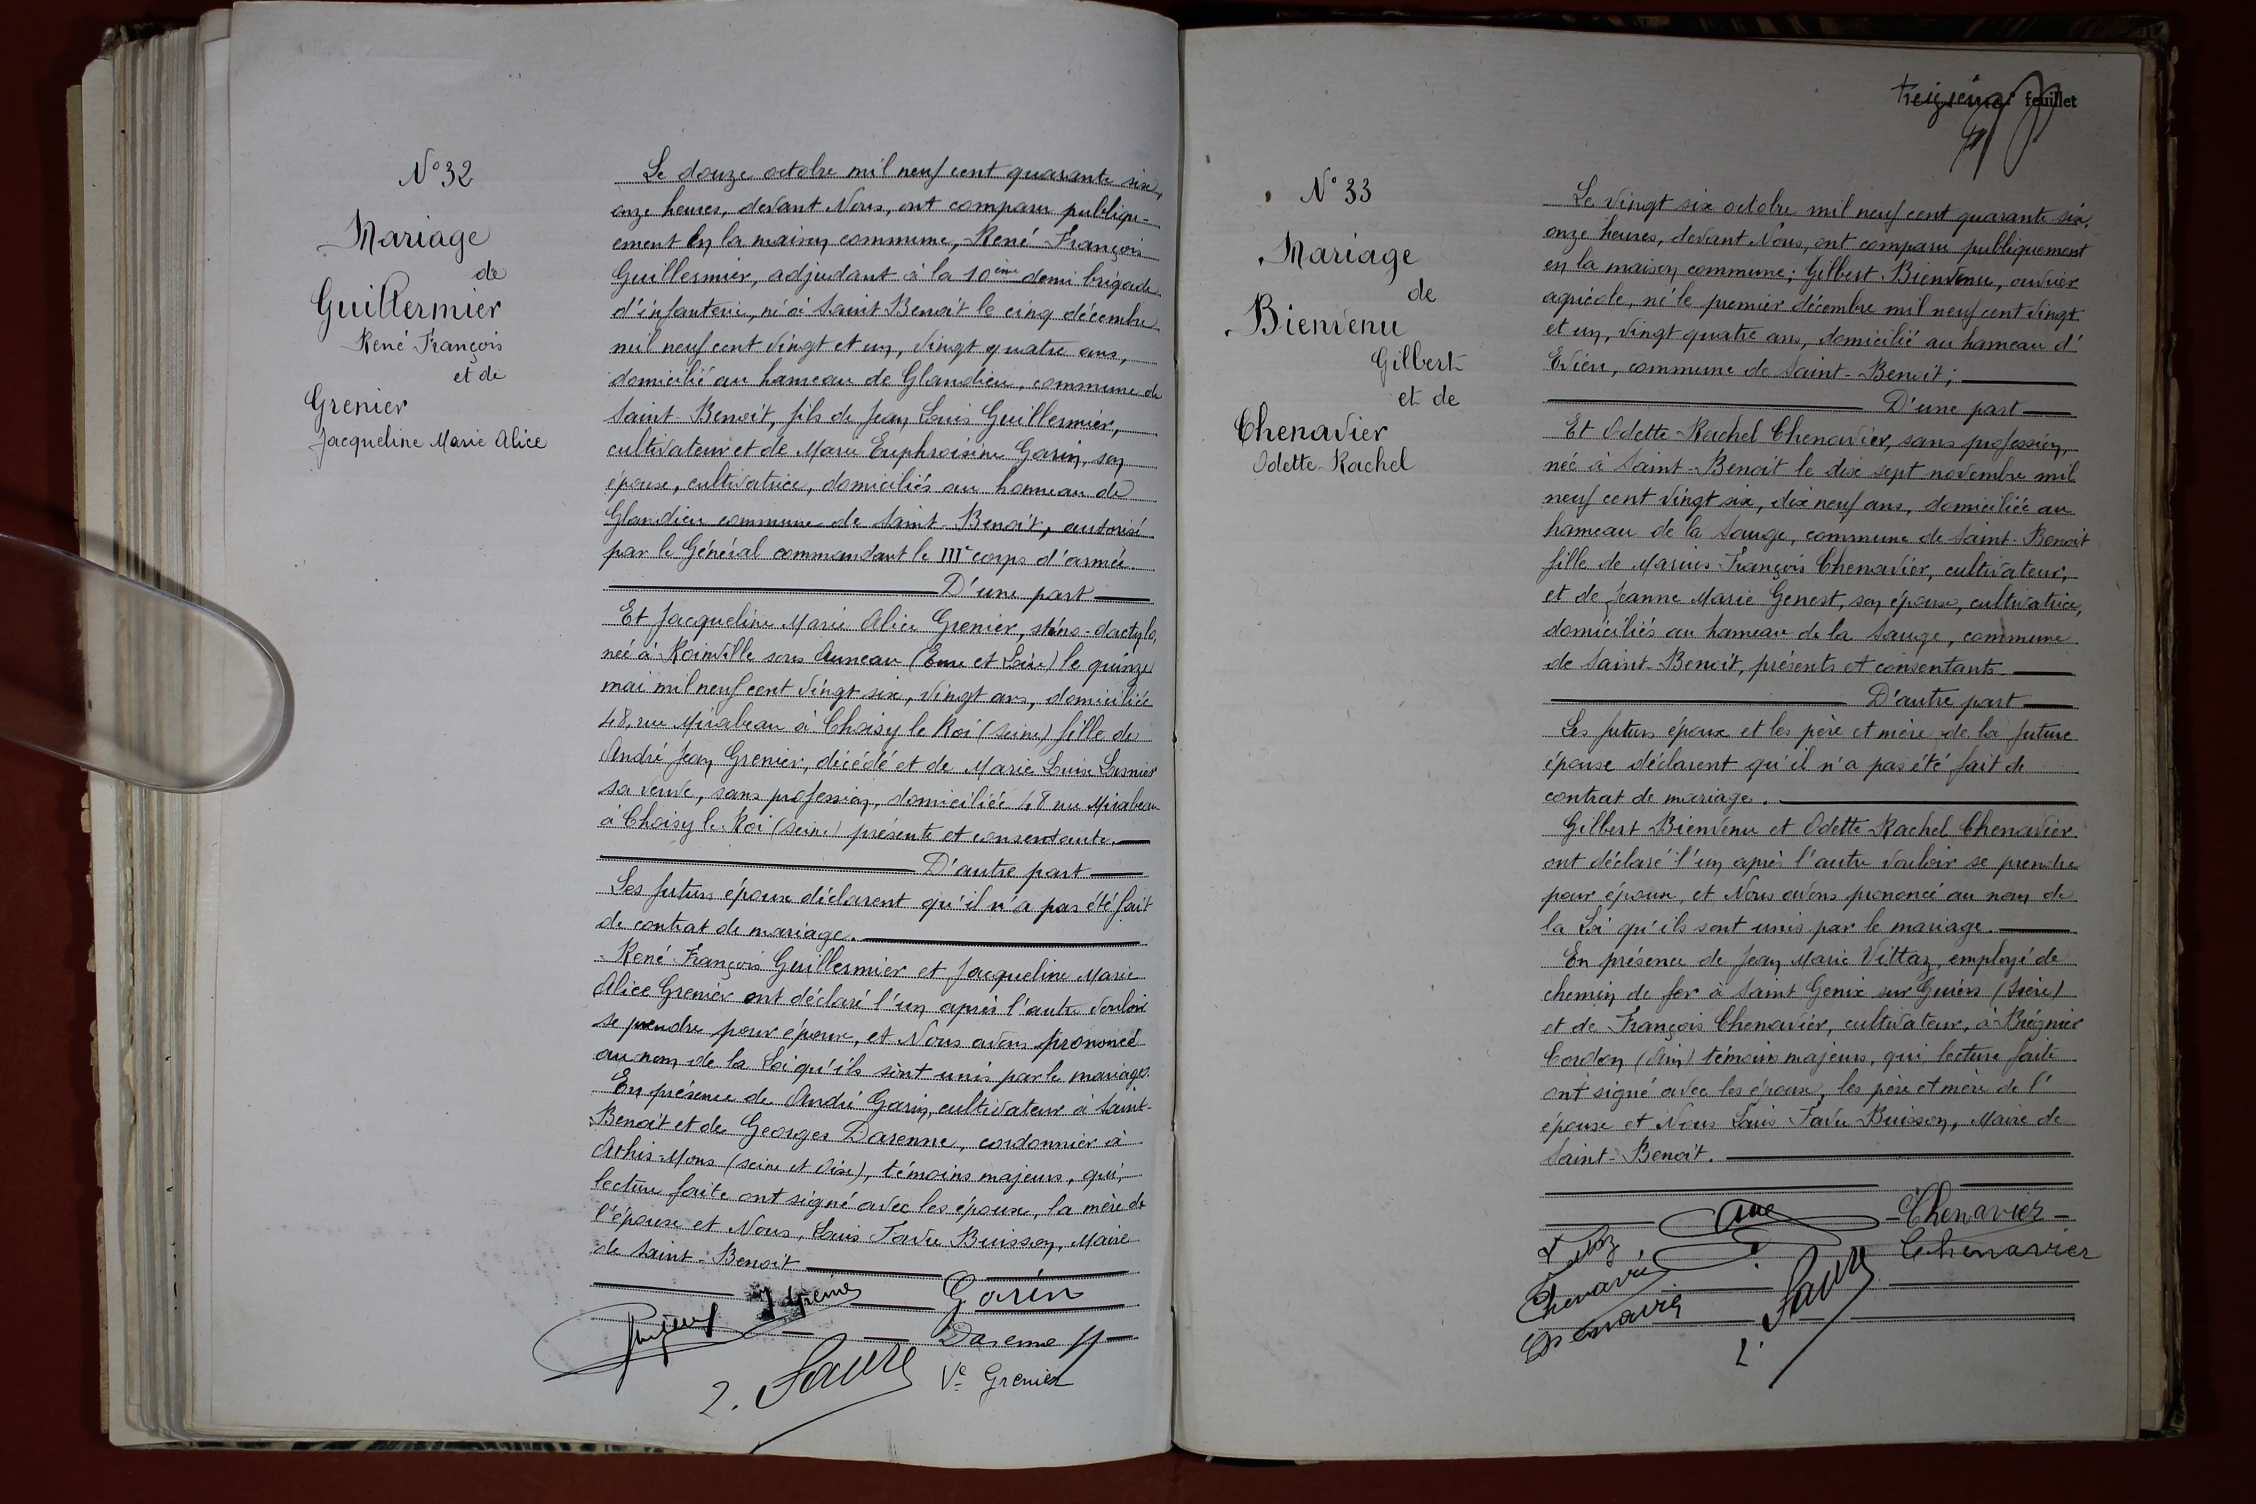 N° 32
Mariage
de
Guillermier
René François
et de
Grenier
Jacqueline Marie Alice
Le douze octobre mil neuf cent quarante six,
onze heures, devant Nous, ont comparu publiqu-
ement en la maison commune, René François
Guillermier, adjudant à la 10ème demi brigade
d'infanterie, né à Saint Benoit le cinq décembre
mil neuf cent vingt et un, vingt quatre ans,
domicilié au hameau de Glandieu, commune de
Saint-Benoit, fils de Jean Louis Guillermier,
cultivateur et de Marie Euphroisine Garin, son
épouse, cultivatrice, domiciliés au hameau de
Glandieu commune de Saint-Benoit, autorisé
par le Général commandant le IIIe corps d'armée.
D'une part
Et Jacqueline Marie Alice Grenier, sténo-dactylo,
née à Roinville sous Auneau (Eure et Loire) le quinze
mai mil neuf cent vingt six, vingt ans, domiciliée
48, rue Mirabeau à Choisy le Roi (Seine) fille de
André Jean Grenier, décédé et de Marie Louise Lesnier
sa veuve, sans profession, domiciliée 48 rue Mirabeau
à Choisy le Roi (Seine) présente et consentante.
D'autre part
Les futurs époux déclarent qu'il n'a pas été fait
de contrat de mariage.
René François Guillermier et Jacqueline Marie
Alice Grenier ont déclaré l'un après l'autre vouloir
se prendre pour époux, et Nous avons prononcé
au nom de la Loi qu'ils sont unis par le mariage.
En présence de André Garin, cultivateur à Saint-
Benoit et de Georges Darenne, cordonnier à
Athis-Mons (Seine et Oise), témoins majeurs, qui,
lecture faite ont signé avec les époux, la mère de
l'épouse et Nous, Louis Favre Buisson, Maire
de Saint-Benoit
J Grenier
Garin
Darenne
L. Favre
Ve Grenier
treizième feuillet
N° 33
Mariage
de
Bienvenu
Gilbert
et de
Chenavier
Odette-Rachel
Le vingt six octobre mil neuf cent quarante six,
onze heures, devant Nous, ont comparu publiquement
en la maison commune; Gilbert Bienvenu, ouvrier
agricole, né le premier décembre mil neuf cent vingt
et un, vingt quatre ans, domicilié au hameau d'
Evieu, commune de Saint-Benoit;
D'une part
Et Odette-Rachel Chenavier, sans profession,
née à Saint-Benoit le dix sept novembre mil
neuf cent vingt six, dix neuf ans, domiciliée au
hameau de la Sauge, commune de Saint-Benoit
fille de Marius François Chenavier, cultivateur,
et de Jeanne Marie Genest, son épouse, cultivatrice,
domiciliés au hameau de la Sauge, commune
de Saint-Benoit, présents et consentants
D'autre part
Les futurs époux et les père et mère de la future
épouse déclarent qu'il n'a pas été fait de
contrat de mariage.
Gilbert Bienvenu et Odette Rachel Chenavier
ont déclaré l'un après l'autre vouloir se prendre
pour époux, et Nous avons prononcé au nom de
la Loi qu'ils sont unis par le mariage.
En présence de Jean Marie Vittaz, employé de
chemin de fer à Saint Genix sur Guiers (Isère)
et de François Chenavier, cultivateur, à Brégnier
Cordon (Ain) témoins majeurs, qui lecture faite
ont signé avec les époux, les père et mère de l'
épouse et Nous Louis Favre Buisson, Maire de
Saint-Benoit.
Chenavier
Chenavier
Chenavié
L. Favre